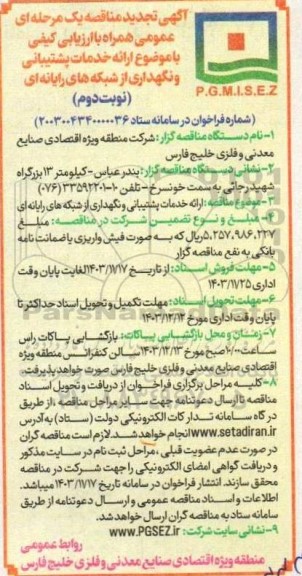 آگهی تجدید مناقصه یک مرحله ای
عمومی همراه با ارزیابی کیفی
با موضوع ارائه خدمات پشتیبانی
و نگهداری از شبکه های رایانه ای
(نوبت دوم)
P.G.M.I.S.E.Z
(شماره فراخوان در سامانه ستاد ۲۰۰۳۰۰۴۳۴۰۰۰۰۰۳۶)
۱- نام دستگاه مناقصه گزار: شرکت منطقه ویژه اقتصادی صنایع
معدنی و فلزی خلیج فارس
۲- نشانی دستگاه مناقصه گزار: بندرعباس - کیلومتر ۱۳ بزرگراه
شهید رجائی به سمت خونسرخ - تلفن ۱۰-۳۳۵۹۲۲۰۱ (۰۷۶)
۳- موضوع مناقصه: ارائه خدمات پشتیبانی و نگهداری از شبکه های رایانه ای
۴- مبلغ و نوع تضمین شرکت در مناقصه: مبلغ
۵,۲۵۷,۹۸۶,۲۲۷ ریال که به صورت فیش واریزی یا ضمانت نامه
بانکی به نفع مناقصه گزار
۵- مهلت فروش اسناد: از تاریخ ۱۴۰۳/۱۱/۱۷ لغایت پایان وقت
اداری ۱۴۰۳/۱۱/۲۵
۶- مهلت تحویل اسناد: مهلت تکمیل و تحویل اسناد حداکثر تا
پایان وقت اداری مورخ ۱۴۰۳/۱۲/۱۲
۷- زمان و محل بازگشایی پاکات: بازگشایی پاکات راس
ساعت صبح مورخ ۱۴۰۳/۱۲/۱۳ سالن کنفرانس منطقه ویژه
اقتصادی صنایع معدنی و فلزی خلیج فارس صورت خواهد پذیرفت.
۸- کلیه مراحل برگزاری فراخوان از دریافت و تحویل اسناد
مناقصه تا ارسال دعوتنامه جهت سایر مراحل مناقصه، از طریق
درگاه سامانه تدارکات الکترونیکی دولت (ستاد) به آدرس
www.setadiran.ir انجام خواهد شد. لازم است مناقصه گران
در صورت عدم عضویت قبلی، مراحل ثبت نام در سایت مذکور
و دریافت گواهی امضای الکترونیکی را جهت شرکت در مناقصه
محقق سازند. انتشار فراخوان در سامانه تاریخ ۱۴۰۳/۱۱/۱۷ میباشد.
اطلاعات و اسناد مناقصه عمومی و ارسال دعوتنامه از طریق
سامانه ستاد به مناقصه گران ارسال خواهد شد.
۹- نشانی سایت شرکت: www.PGSEZ.ir
روابط عمومی
منطقه ویژه اقتصادی صنایع معدنی و فلزی خلیج فارس